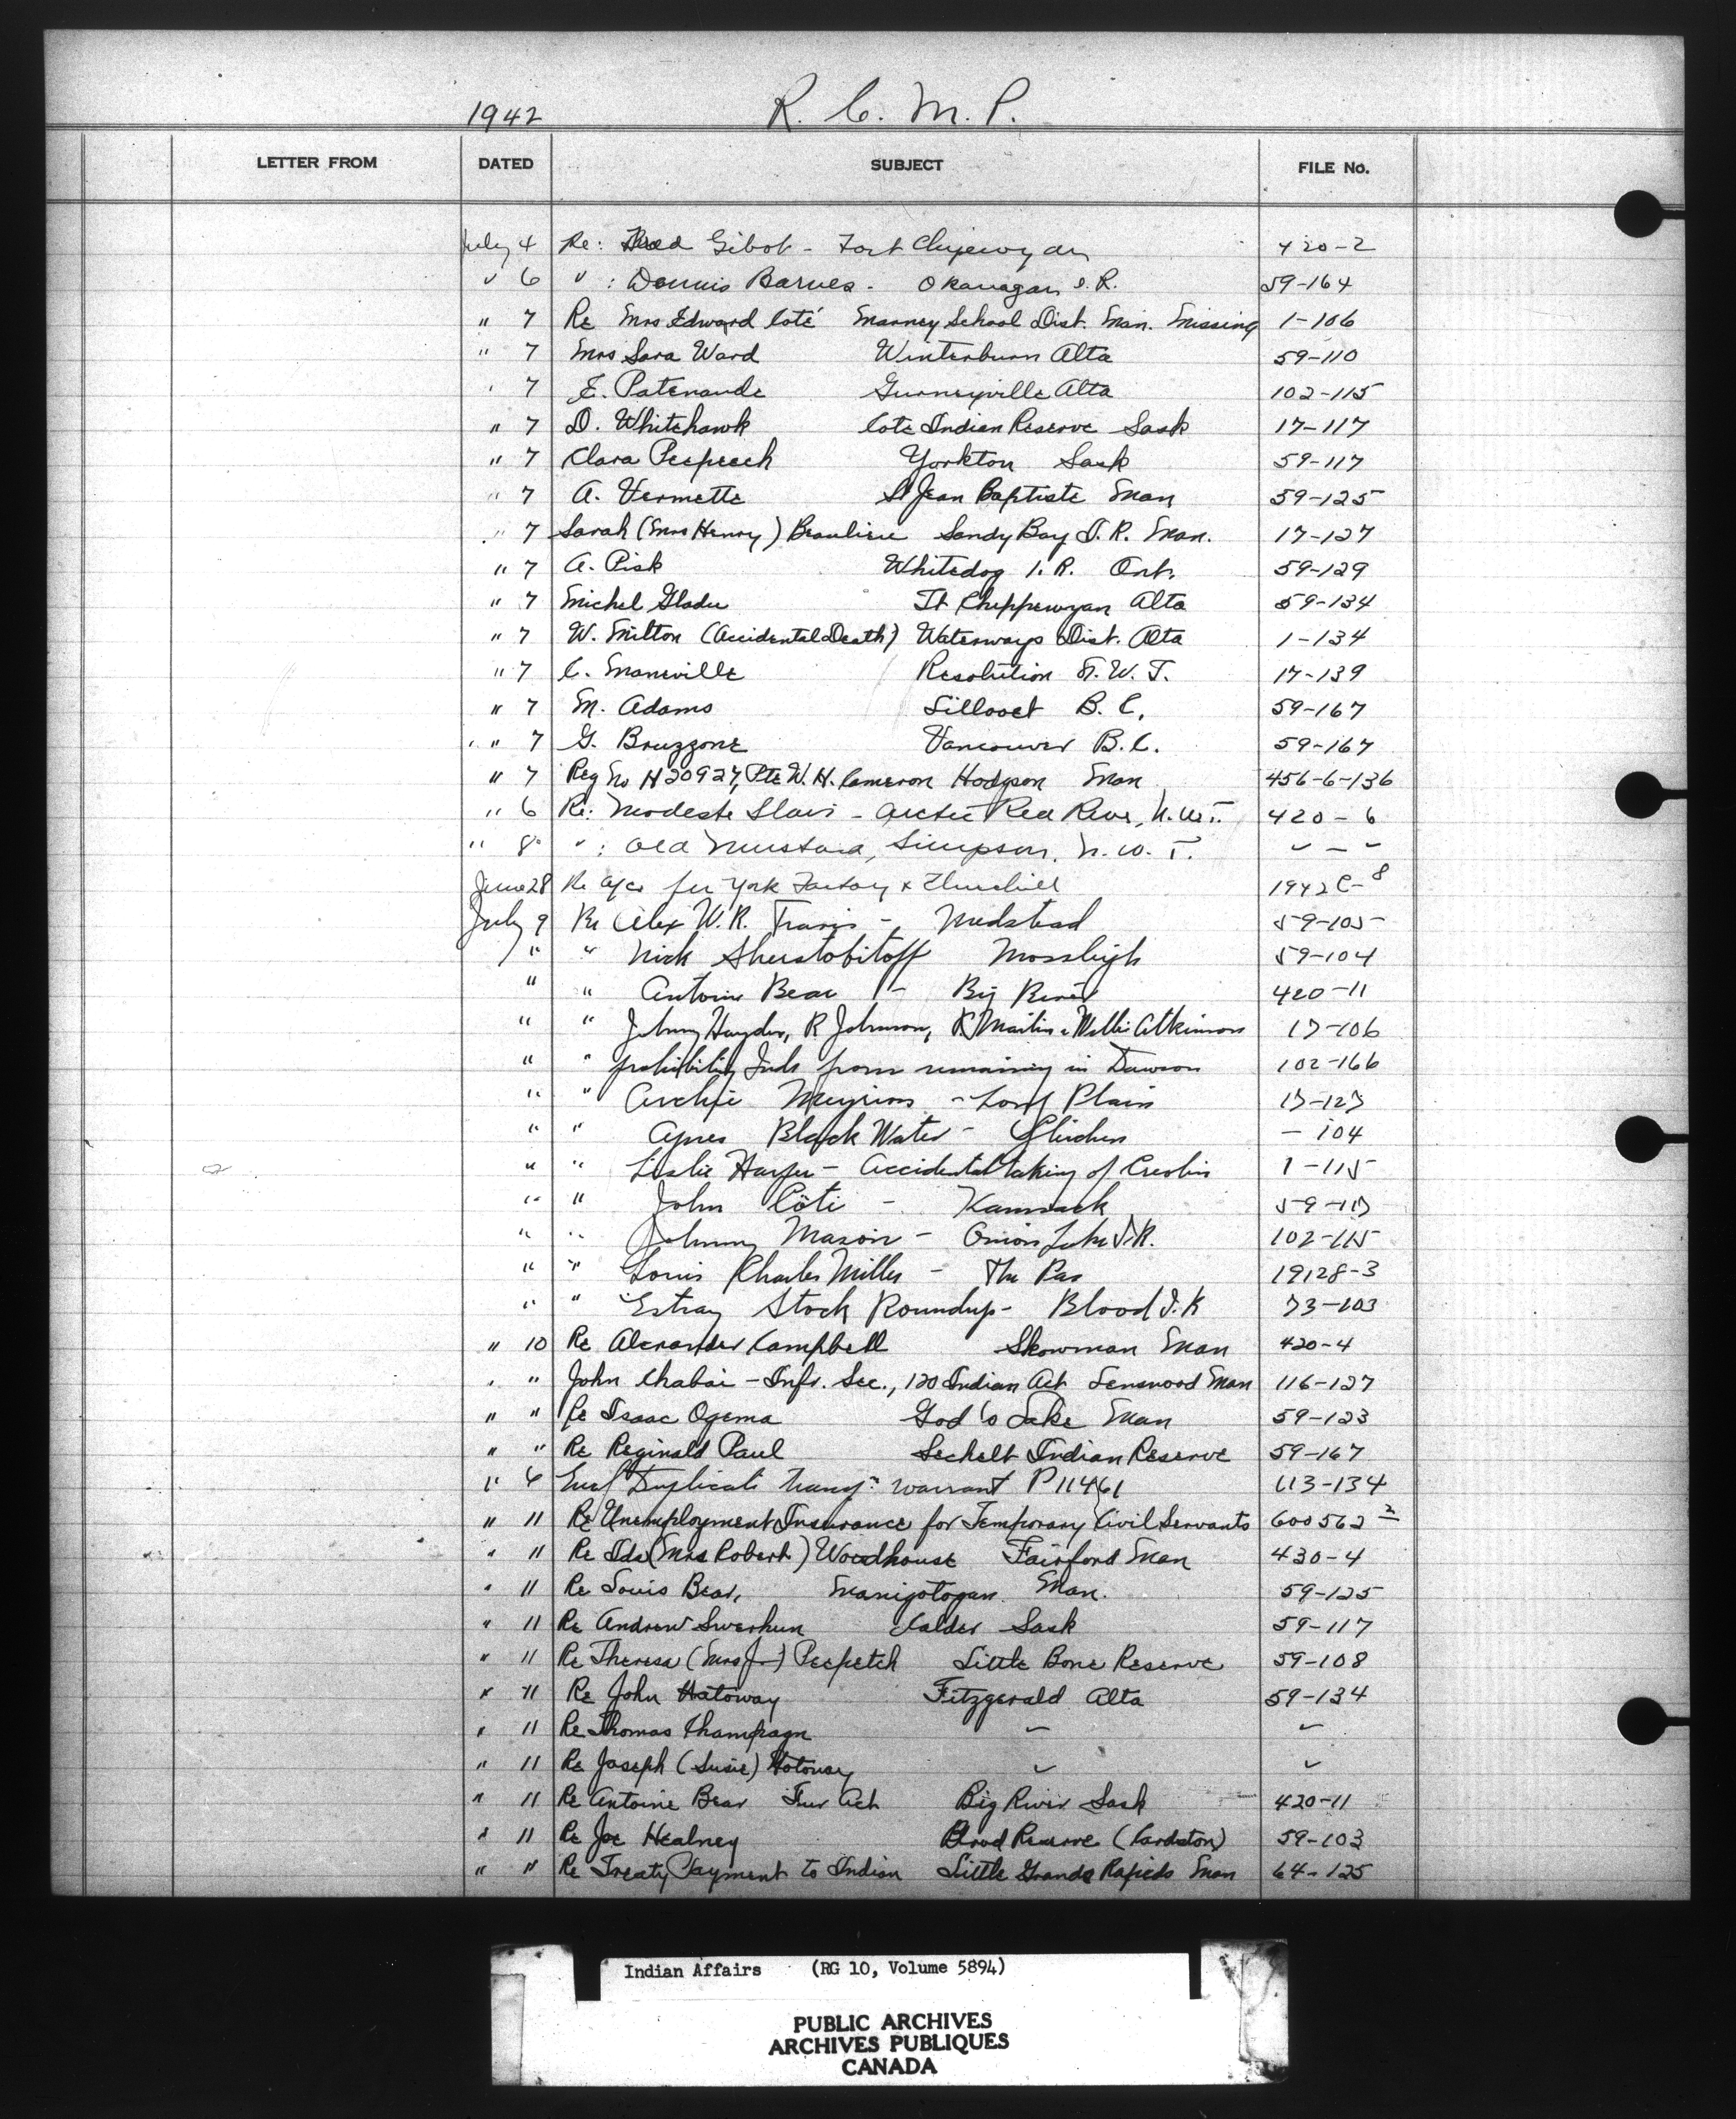 1942 R. C. M. P.
LETTER FROM DATED SUBJECT FILE No.
July 4 Re: Gibot - Fort Chipewyan 420-2
" 6 " : Dennis Barnes - Okanagan I.R. 59-164
" 7 Re Mrs Edward Coté Marney School Dist. Man. Missing 1-106
" 7 Mrs Sara Ward Winterburn Alta 59-110
" 7 E. Patenaude Gurneyville Alta 102-115
" 7 D. Whitehawk Cote Indian Reserve Sask 17-117
" 7 Clara Peepeech Yorkton Sask 59-117
" 7 A. Vermette St Jean Baptiste Man 59-125
" 7 Sarah (Mrs Henry) Beaulieu Sandy Bay I.R. Man. 17-127
" 7 A. Pisk Whitedog I.R. Ont. 59-129
" 7 Michel Gladu Ft Chippewyan Alta 59-134
" 7 W. Milton (Accidental Death) Waterways Dist. Alta 1-134
" 7 C. Maneville Resolution N.W.T. 17-139
" 7 M. Adams Lillooet B.C. 59-167
" 7 G. Bruzzone Vancouver B.C. 59-167
" 7 Reg No H20927, Pte W.H. Cameron Hodgson Man 456-6-136
" 6 Re: Modeste Slavi - Arctic Red River, N.W.T. 420-6
" 8 " : Old Mustard, Simpson, N.W.T. " - "
June 28 Re a/cs for York Factory & Churchill 1942 C-8
July 9 Re Alex W.R. Travis - Medstead 59-105
" " Nick Sherstobitoff Mossleigh 59-104
" " Antoine Bear - Big River 420-11
" " Johnny Hayden, R Johnson, R Martin & Willie Atkinson 17-106
" " prohibiting Inds from remaining in Dawson 102-166
" " Archie - Long Plain 17-127
" " Agnes Black Water - Gleichen - 104
" " Leslie Harper - Accidental taking of Creolin 1-115
" " John Côté - Kamsack 59-117
" " Johnny Mason - Onion Lake I.R. 102-115
" " Louis Charles Miller - The Pas 19128-3
" " Estray Stock Roundup - Blood I.R 73-103
" 10 Re Alexander Campbell Skowman Man 420-4
" " John Chabai - Infr. Sec., 120 Indian Act Lenswood Man 116-127
" " Re Isaac Ogema God's Lake Man 59-123
" " Re Reginald Paul Sechelt Indian Reserve 59-167
" 6 Encl Duplicate transp: warrant P11461 113-134
" 11 Re Unemployment Insurance for Temporary Civil Servants 600562 2
" 11 Re Ida (Mrs Robert) Woodhouse Fairford Man 430-4
" 11 Re Louis Bear, Manigotogan Man. 59-125
" 11 Re Andrew Swerhun Calder Sask 59-117
" 11 Re Theresa (Mrs Jr) Peepetch Little Bone Reserve 59-108
" 11 Re John Hatoway Fitzgerald Alta 59-134
" 11 Re Thomas Champagn " "
" 11 Re Joseph (Susie) Hatoway " "
" 11 Re Antoine Bear Fur Act Big River Sask 420-11
" 11 Re Joe Healney Blood Reserve (Cardston) 59-103
" " Re Treaty Payment to Indian Little Grande Rapids Man 64-125
Indian Affairs (RG 10, Volume 5894)
PUBLIC ARCHIVES
ARCHIVES PUBLIQUES
CANADA